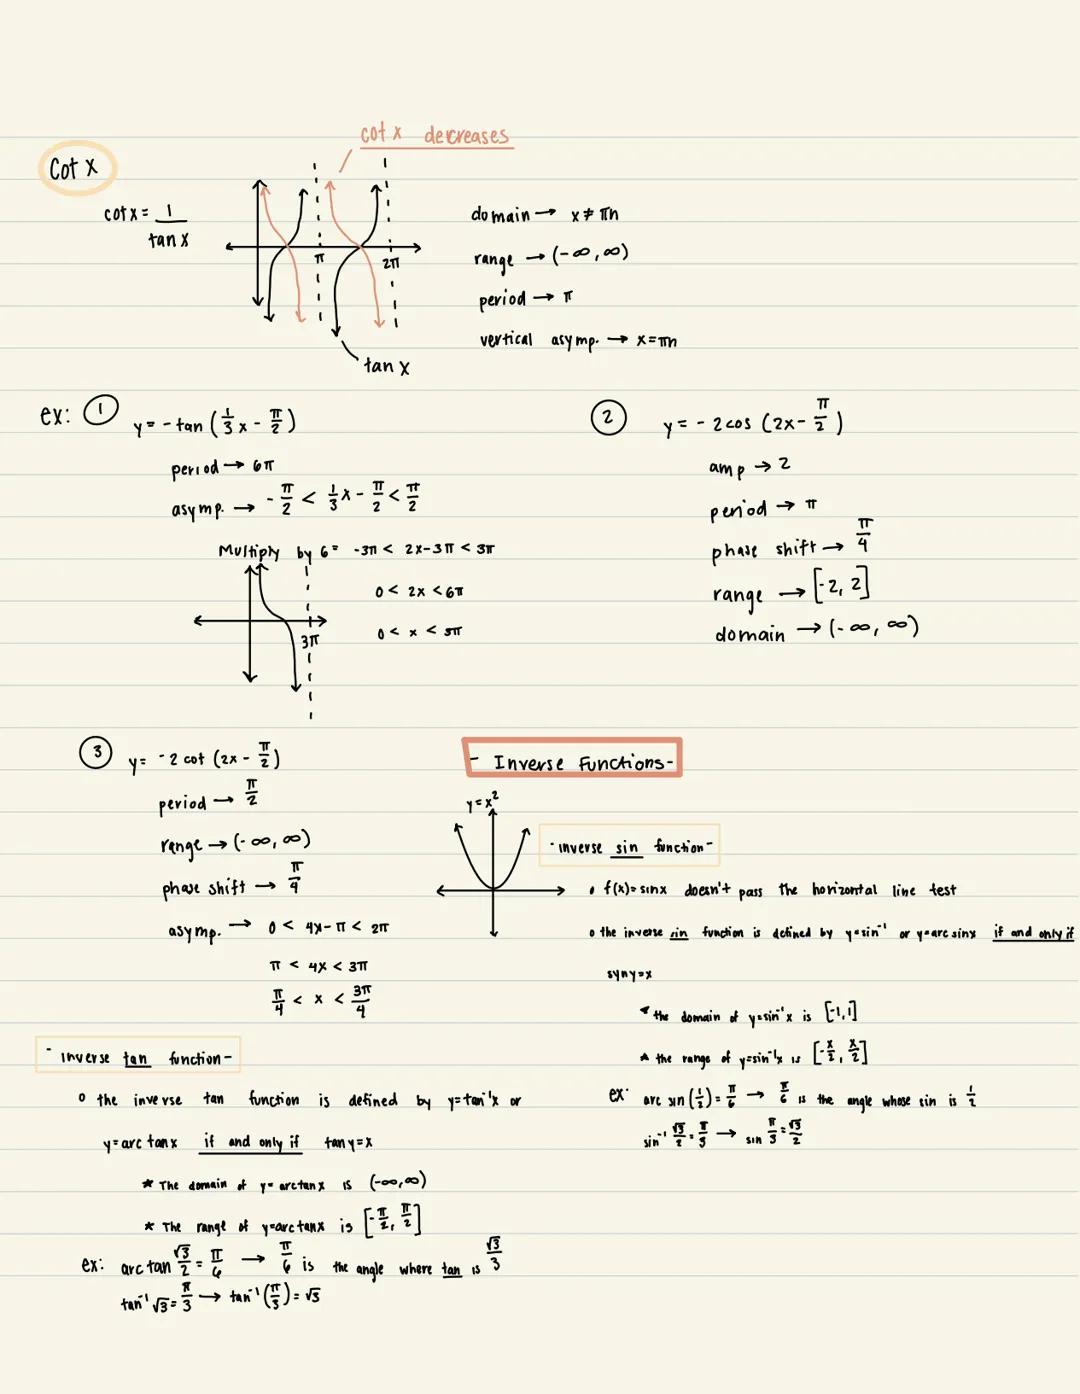 cot x decreases
Cot x
cot x = 1/tan x
π
2π
tan x
domain → x ≠ πn
range → (-∞, ∞)
period → π
vertical asymp. → x = πn
ex: ① y = - tan (1/3 x - π/2)
period → 6π
asymp. → -π/2 < 1/3 x - π/2 < π/2
Multiply by 6 = -3π < 2x - 3π < 3π
0 < 2x < 6π
0 < x < 3π
3π
② y = - 2 cos (2x - π/2)
amp → 2
period → π
phase shift → π/4
range → [-2, 2]
domain → (-∞, ∞)
③ y = -2 cot (2x - π/2)
period → π/2
range → (-∞, ∞)
phase shift → π/4
asymp. → 0 < 4x - π < 2π
π < 4x < 3π
π/4 < x < 3π/4
- Inverse Functions -
y = x²
- inverse sin function -
• f(x) = sin x doesn't pass the horizontal line test
o the inverse sin function is defined by y = sin⁻¹ or y = arc sin x if and only if
syn y = x
* the domain of y = sin⁻¹x is [-1, 1]
* the range of y = sin⁻¹x is [-x/2, x/2]
ex: arc sin (1/2) = π/6 → π/6 is the angle whose sin is 1/2
sin⁻¹ √3/2 = π/3 → sin π/3 = √3/2
- inverse tan function -
o the inverse tan function is defined by y = tan⁻¹x or
y = arc tan x if and only if tan y = x
* The domain of y = arctan x is (-∞, ∞)
* The range of y = arctan x is [-π/2, π/2]
ex: arc tan √3/2 = π/6 → π/6 is the angle where tan is √3/3
tan⁻¹ √3 = π/3 → tan⁻¹ (π/3) = √3